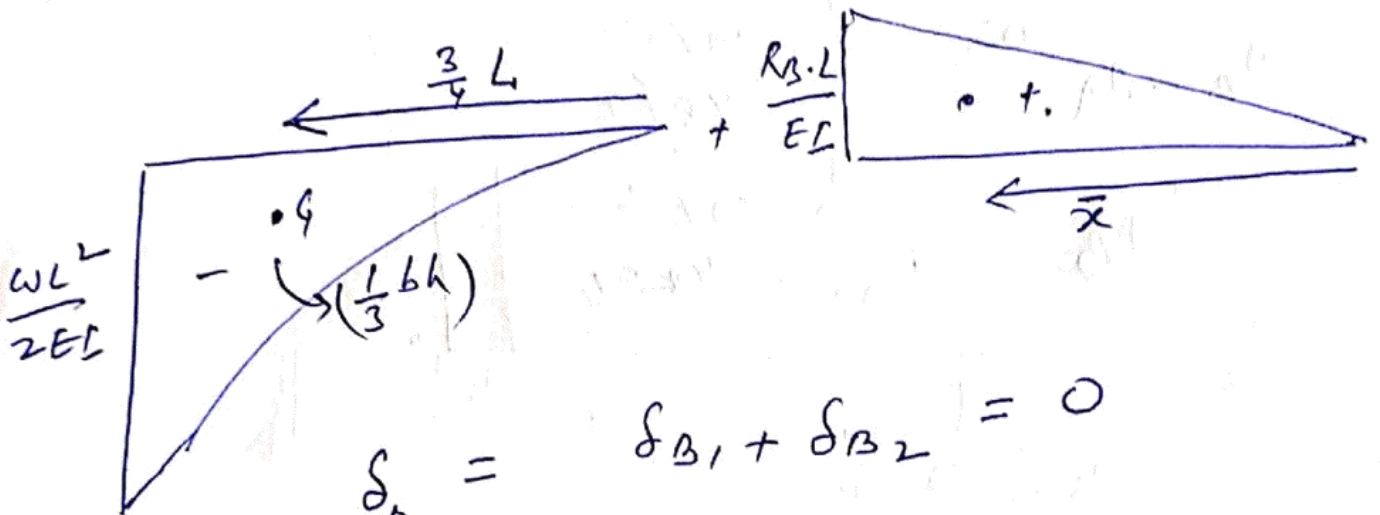 3/4 L
+ R_B.L/EI
+.
x̄
.G
wL²/2EI
-
(1/3 bh)
δ_B = δ_B₁ + δ_B₂ = 0